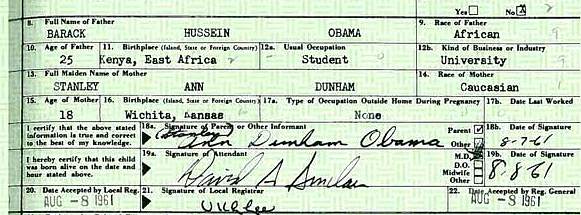 Yes No X
8. Full Name of Father 9. Race of Father
BARACK HUSSEIN OBAMA African 9
10. Age of Father 11. Birthplace (Island, State or Foreign Country) 12a. Usual Occupation 12b. Kind of Business or Industry
25 Kenya, East Africa Student University 9
13. Full Maiden Name of Mother 14. Race of Mother
STANLEY ANN DUNHAM Caucasian
15. Age of Mother 16. Birthplace (Island, State or Foreign Country) 17a. Type of Occupation Outside Home During Pregnancy 17b. Date Last Worked
18 Wichita, Kansas None
I certify that the above stated information is true and correct to the best of my knowledge.
18a. Signature of Parent or Other Informant
(Stanley) Ann Dunham Obama
Parent
Other
18b. Date of Signature
8-7-61
I hereby certify that this child was born alive on the date and hour stated above.
19a. Signature of Attendant
David A Sinclair
M.D.
D.O.
Midwife
Other
19b. Date of Signature
8-8-61
20. Date Accepted by Local Reg. 21. Signature of Local Registrar 22. Date Accepted by Reg. General
AUG -8 1961 U K L Lee AUG -8 1961